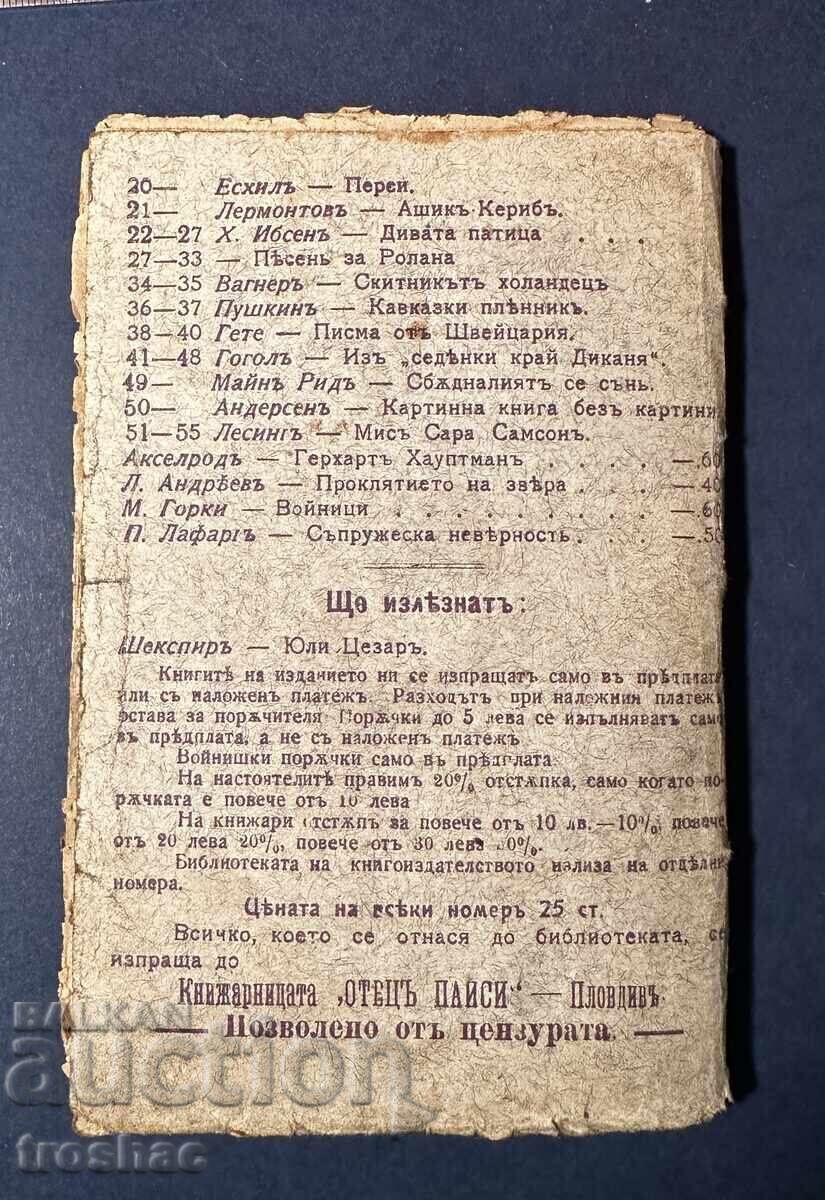 20— Есхилъ — Перси.
21— Лермонтовъ — Ашикъ-Керибъ.
22—27 Х. Ибсенъ — Дивата патица . . .
27—33 — Пѣсень за Ролана
34—35 Вагнеръ — Скитникътъ холандецъ
36—37 Пушкинъ — Кавказки плѣнникъ.
38—40 Гете — Писма отъ Швейцария.
41—48 Гоголъ — Изъ „седѣнки край Диканя“.
49— Майнъ Ридъ — Сбѫдналиятъ се сънь.
50— Андерсенъ — Картинна книга безъ картини
51—55 Лесингъ — Мисъ Сара Самсонъ.
Акселродъ — Герхартъ Хауптманъ . . . . —.60
Л. Андрѣевъ — Проклятието на звѣра . . . . —40
М. Горки — Войници . . . . . . . . . —.60
П. Лафаргъ — Съпружеска невѣрность . . . . —.50
Ще излѣзнатъ:
Шекспиръ — Юли Цезаръ.
Книгитѣ на изданието ни се изпращатъ само въ прѣдплата
или съ наложенъ платежъ. Разходътъ при наложния платежъ
остава за порѫчителя Порѫчки до 5 лева се изпълняватъ само
въ прѣдплата, а не съ наложенъ платежъ
Войнишки порѫчки само въ прѣдплата
На настоятелитѣ правимъ 20% отстѫпка, само когато по-
рѫчката е повече отъ 10 лева
На книжари отстѫпъ за повече отъ 10 лв.—10%, повече
отъ 20 лева 20%, повече отъ 30 лева
Библиотеката на книгоиздателството излиза на отдѣлни
номера.
Цѣната на всѣки номеръ 25 ст.
Всичко, което се отнася до библиотеката, се
изпраща до
Книжарницата „ОТЕЦЪ ПАИСИ“ — Пловдивъ
— Позволено отъ цензурата. —
BALKAN
auction
troshac